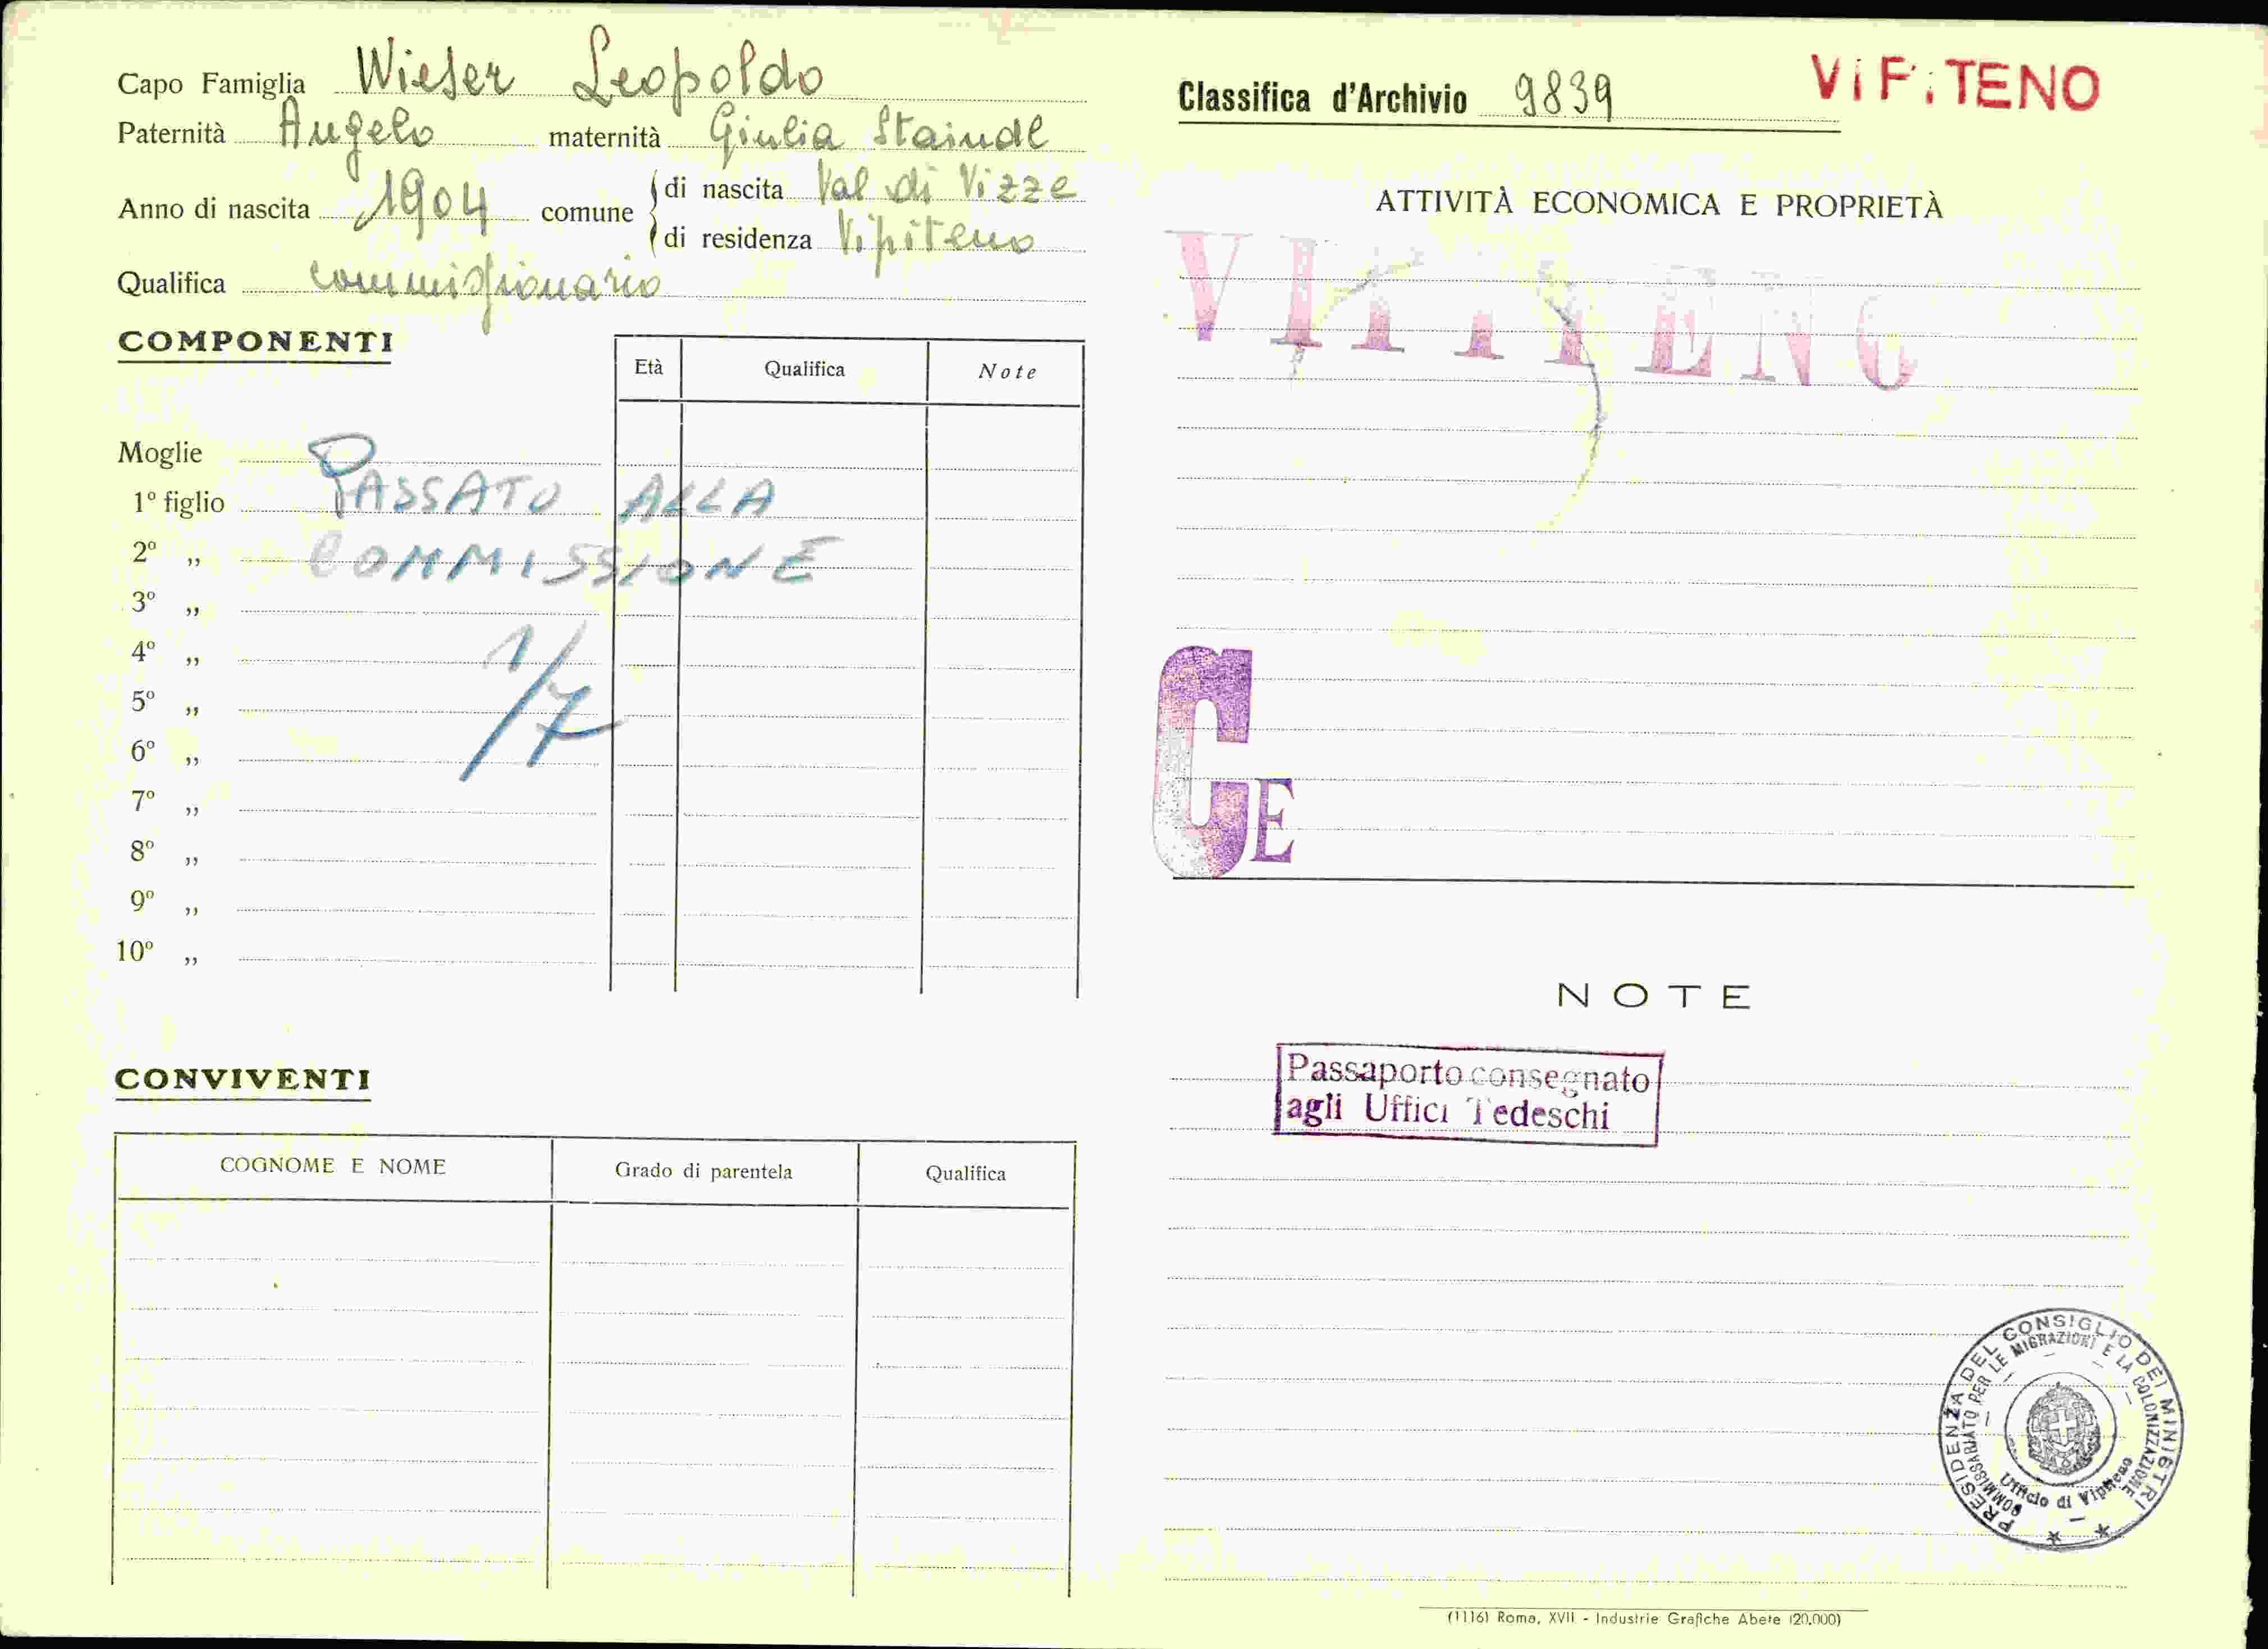 Capo Famiglia Wieser Leopoldo
Paternità Angelo maternità Giulia Staindl
Anno di nascita 1904 comune di nascita Val di Vizze
di residenza Vipiteno
Qualifica commissionario
COMPONENTI
Età Qualifica Note
Moglie
1º figlio PASSATO ALLA
2º ,, COMMISSIONE
3º ,,
4º ,, 1/7
5º ,,
6º ,,
7º ,,
8º ,,
9º ,,
10º ,,
CONVIVENTI
COGNOME E NOME Grado di parentela Qualifica
Classifica d'Archivio 9839
ViPiTENO
ATTIVITÀ ECONOMICA E PROPRIETÀ
VIPITENO
CE
NOTE
Passaporto consegnato
agli Uffici Tedeschi
PRESIDENZA DEL CONSIGLIO DEI MINISTRI
COMMISSARIATO PER LE MIGRAZIONI E LA COLONIZZAZIONE
Ufficio di Vipiteno
(1116) Roma, XVII - Industrie Grafiche Abete (20.000)